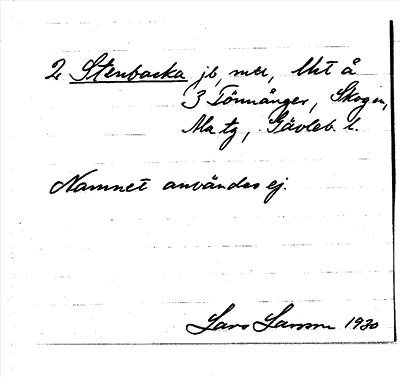 2 Stenbacka jb, mel, llkt å
3 Tönnånger, Skogen,
Ma tg, Gävleb. l.
Namnet användes ej.
Lars Larsson 1930